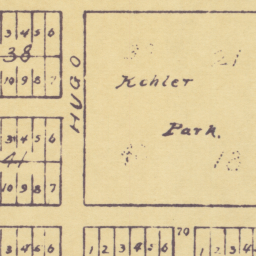 3 4 5 6
38
10 9 8 7
HUGO
Kohler
Park.
3 4 5 6
41
10 9 8 7
18
79
3 4 5 6
1 2 3 4 5 6
1 2 3 4